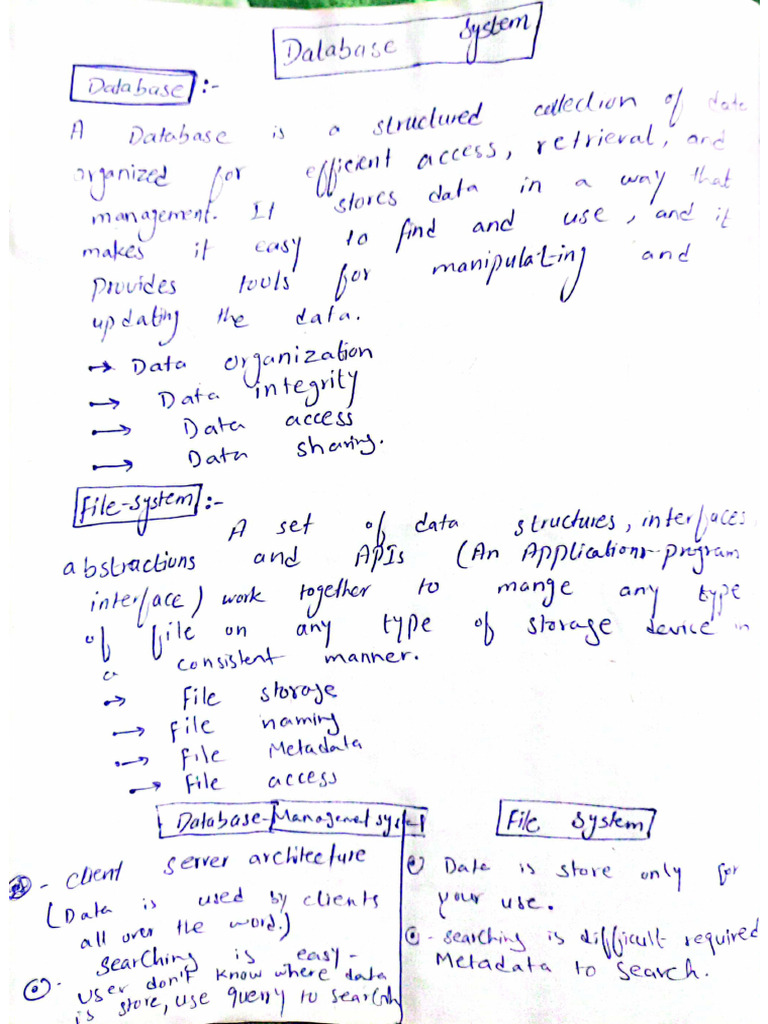 Database System
Database :-
A Database is a structured collection of data
organized for efficient access, retrieval, and
management. It stores data in a way that
makes it easy to find and use, and it
Provides tools for manipulating and
updating the data.
→ Data organization
→ Data integrity
→ Data access
→ Data sharing.
File-system :-
A set of data structures, interfaces,
abstractions and APIs (An Applications-program
interface) work together to mange any type
of file on any type of storage device in
a consistent manner.
→ File storage
→ File naming
→ File Metadata
→ File access
Database-Management system
- client server architecture
(Data is used by clients
all over the word.)
searching is easy-
- user don't know where data
is store, use query to search
File System
Data is store only for
your use.
- searching is difficult required
Metadata to search.